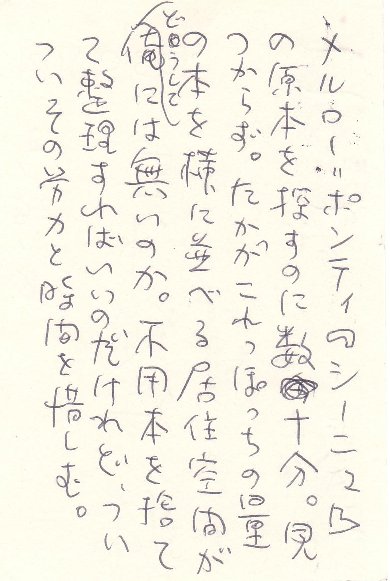 メルロー=ポンティのシーニュ
の原本を探すのに数十分。見
つからず。たかがこれっぽっちの量
の本を横に並べる居住空間が
どうして
俺には無いのか。不用本を捨て
て整理すればいいのだけれど、つい
ついその労力と時間を惜しむ。